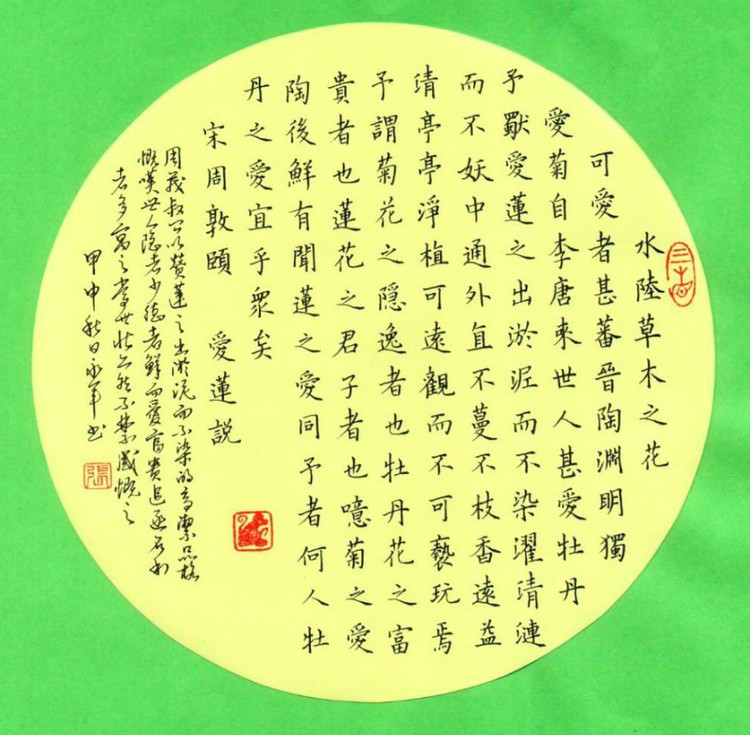 水陸草木之花
可愛者甚蕃晉陶淵明獨
愛菊自李唐來世人甚愛牡丹
予愛蓮之出淤泥而不染濯清漣
而不妖中通外直不蔓不枝香遠益
清亭亭淨植可遠觀而不可褻玩焉
予謂菊花之隱逸者也牡丹花之富
貴者也蓮花之君子者也噫菊之愛
陶後鮮有聞蓮之愛同予者何人牡
丹之愛宜乎衆矣
宋周敦頤 愛蓮説
周茂叔以贊蓮之出淤泥而不染的高潔品格
慨嘆世人隐者少德者鮮而愛富貴追逐名利
者多寓之世不禁感慨之
甲申秋日永年书
張